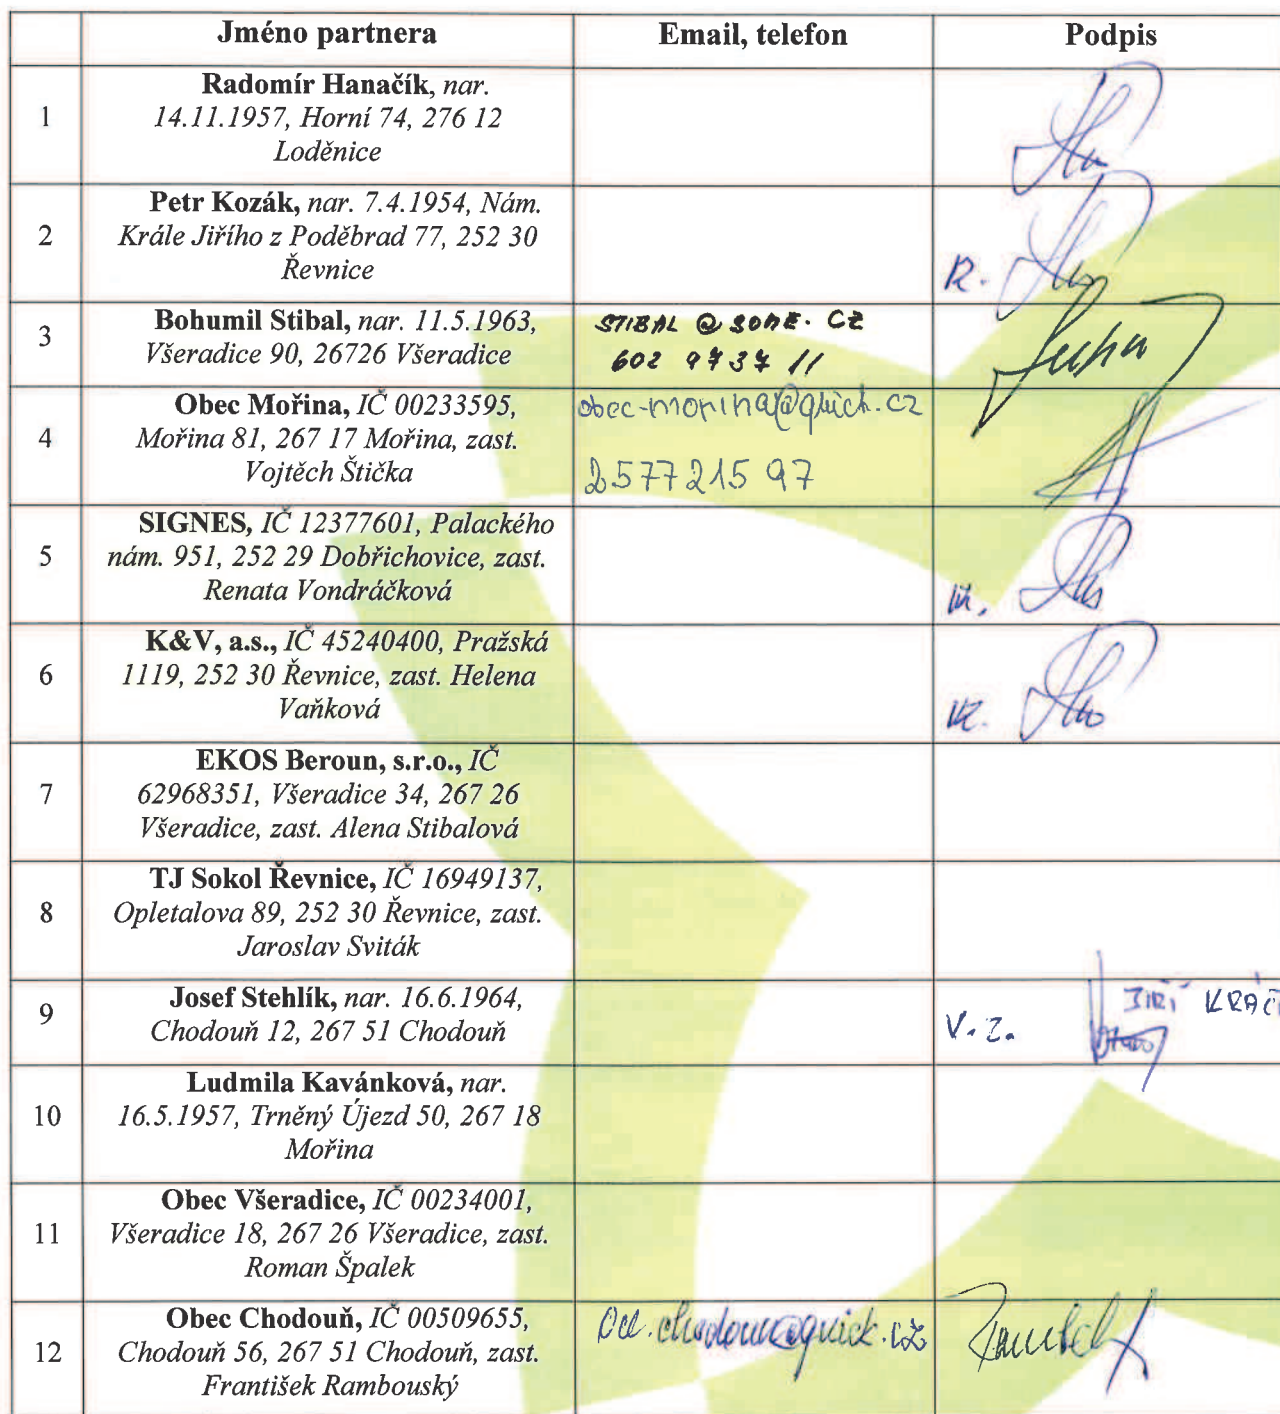 Jméno partnera Email, telefon Podpis
1 Radomír Hanačík, nar.
14.11.1957, Horní 74, 276 12
Loděnice
2 Petr Kozák, nar. 7.4.1954, Nám.
Krále Jiřího z Poděbrad 77, 252 30
Řevnice
3 Bohumil Stibal, nar. 11.5.1963,
Všeradice 90, 26726 Všeradice
602 9737 11
4 Obec Mořina, IČ 00233595,
Mořina 81, 267 17 Mořina, zast.
Vojtěch Štička
obec-morina@quick.cz
257721597
5 SIGNES, IČ 12377601, Palackého
nám. 951, 252 29 Dobřichovice, zast.
Renata Vondráčková
6 K&V, a.s., IČ 45240400, Pražská
1119, 252 30 Řevnice, zast. Helena
Vaňková
7 EKOS Beroun, s.r.o., IČ
62968351, Všeradice 34, 267 26
Všeradice, zast. Alena Stibalová
8 TJ Sokol Řevnice, IČ 16949137,
Opletalova 89, 252 30 Řevnice, zast.
Jaroslav Sviták
9 Josef Stehlík, nar. 16.6.1964,
Chodouň 12, 267 51 Chodouň
V.Z. JIŘÍ
10 Ludmila Kavánková, nar.
16.5.1957, Trněný Újezd 50, 267 18
Mořina
11 Obec Všeradice, IČ 00234001,
Všeradice 18, 267 26 Všeradice, zast.
Roman Špalek
12 Obec Chodouň, IČ 00509655,
Chodouň 56, 267 51 Chodouň, zast.
František Rambouský